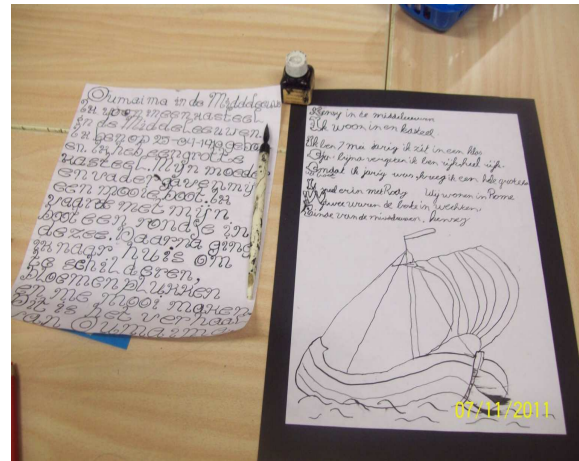 Oumaima in de Middeleeuwen
Ik woon in een kasteel
in de Middeleeuwen.
Ik ben op 25-04-14
en ik heb een grote
kasteel. Mijn moeder
en vader gaven mij
een mooie boot. Ik
vaarde met mijn
boot een rondje in
de zee. Daarna ging
ik naar huis om
te schilderen,
bloemen plukken
en me mooi maken.
Dit is het verhaal
van Oumaima
Henry in de middeleeuwen
Ik woon in en kasteel.
Ik ben 7 mei jarig ik zit in een klas
bijna vergeten ik ben rijk heel rijk.
Omdat ik jarig was, kreeg ik een hele grote
erin met Rody Wij wonen in Rome
waren de beste in vechten
Einde van de middeleeuwen, henry
07/11/2011